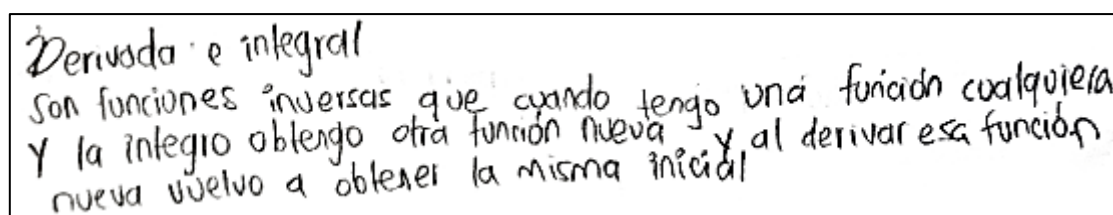 Derivada e integral
Son funciones inversas que cuando tengo una función cualquiera
y la integro obtengo otra función nueva y al derivar esa función
nueva vuelvo a obtener la misma inicial